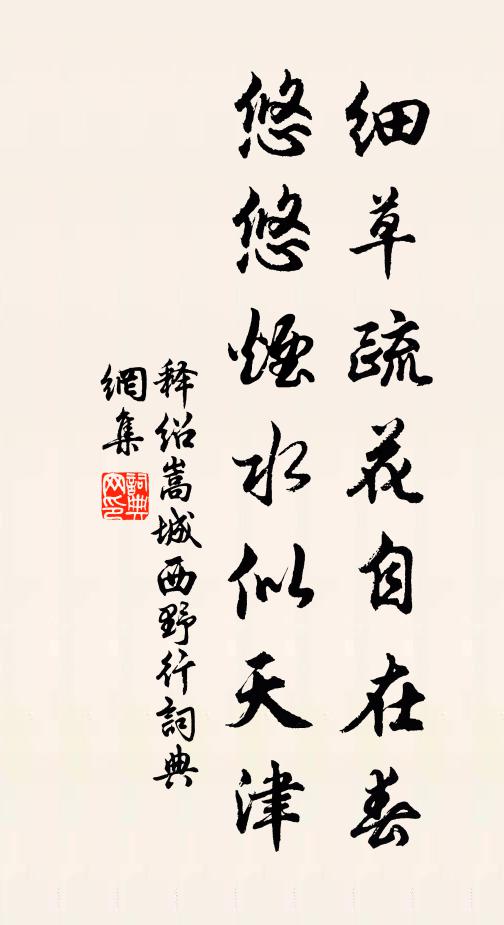 细草疏花自在春
悠悠煙水似天津
释绍嵩城西野行詞典
網集
詞典
网印